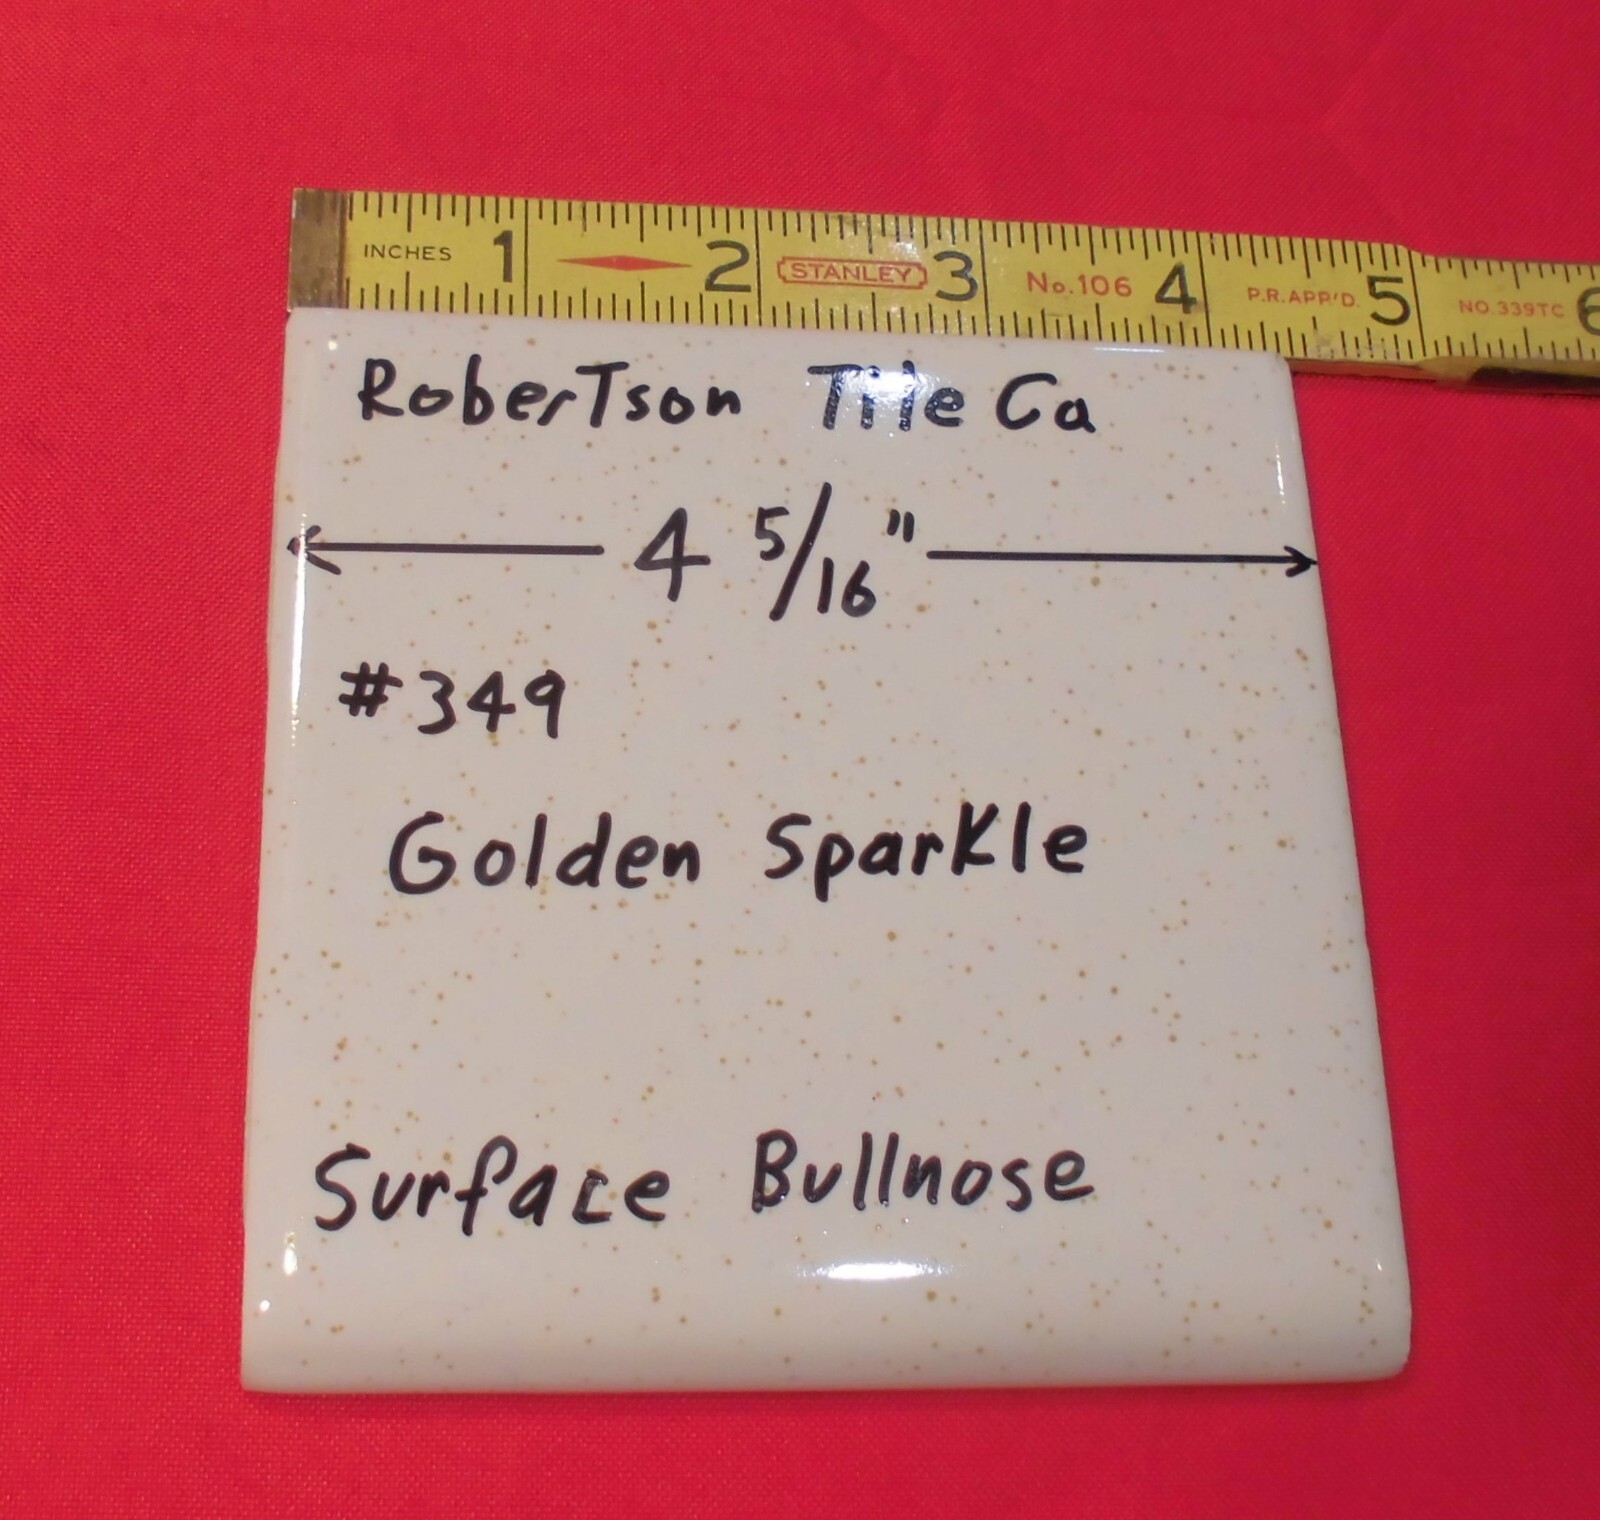 INCHES 1 2 STANLEY 3 No.106 4 P.R.APP'D. 5 NO.339TC 6
RoberTson Tile Co
4 5/16"
#349
Golden Sparkle
Surface Bullnose